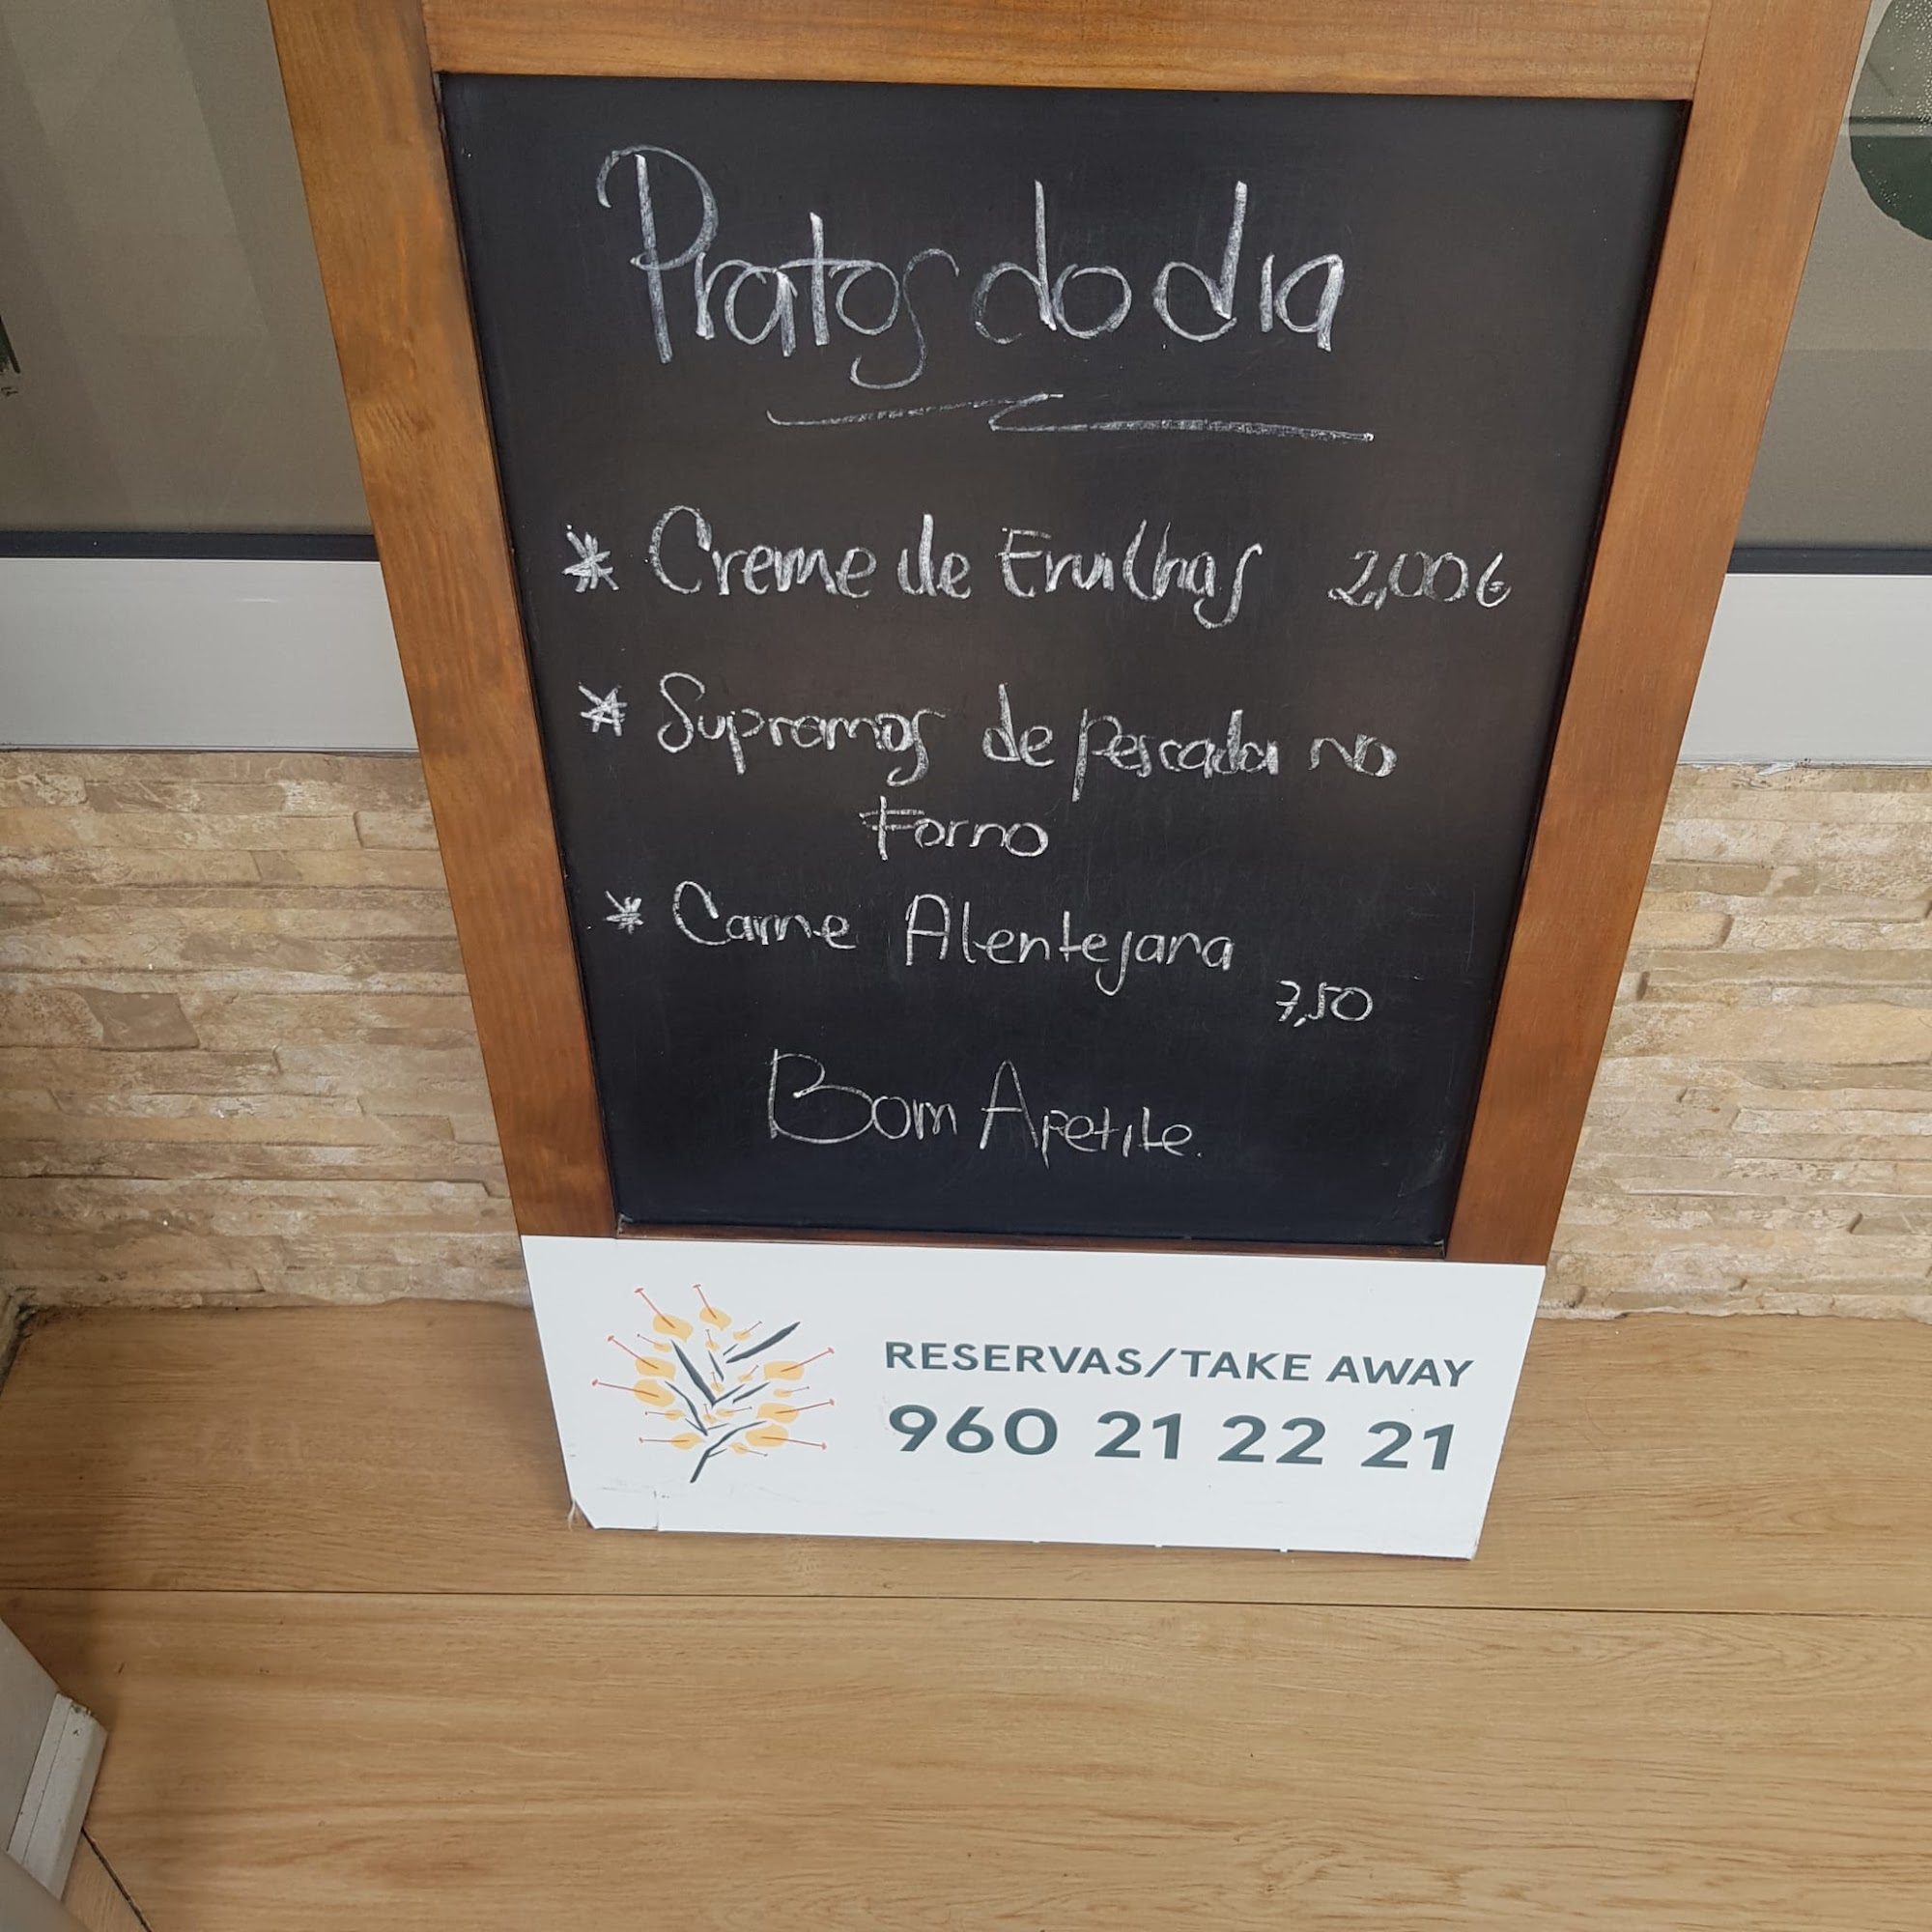 Pratos do dia
* Creme de Ervilhas 2,00€
* Supremos de pescada no
Forno
* Carne Alentejana
7,50
Bom Apetite.
RESERVAS/TAKE AWAY
960 21 22 21